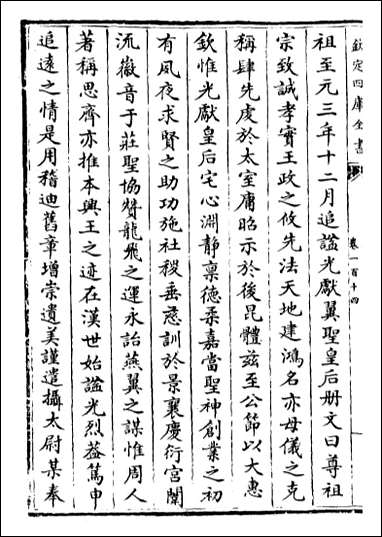 欽定四庫全書
卷一百十四
祖至元三年十二月追諡光獻翼聖皇后册文曰尊祖
宗致誠孝實王政之攸先法天地建鴻名亦母儀之克
稱肆先虔於太室庸昭示於後昆體茲至公節以大惠
欽惟光獻皇后宅心淵靜禀德柔嘉當聖神創業之初
有夙夜求賢之助功施社稷垂慈訓於景襄慶衍宫闈
流徽音于莊聖協贊龍飛之運永詒燕翼之謀惟周人
著稱思齊亦推本興王之迹在漢世始諡光烈葢篤申
追逺之情是用稽迪舊章增崇遺美謹遣攝太尉某奉